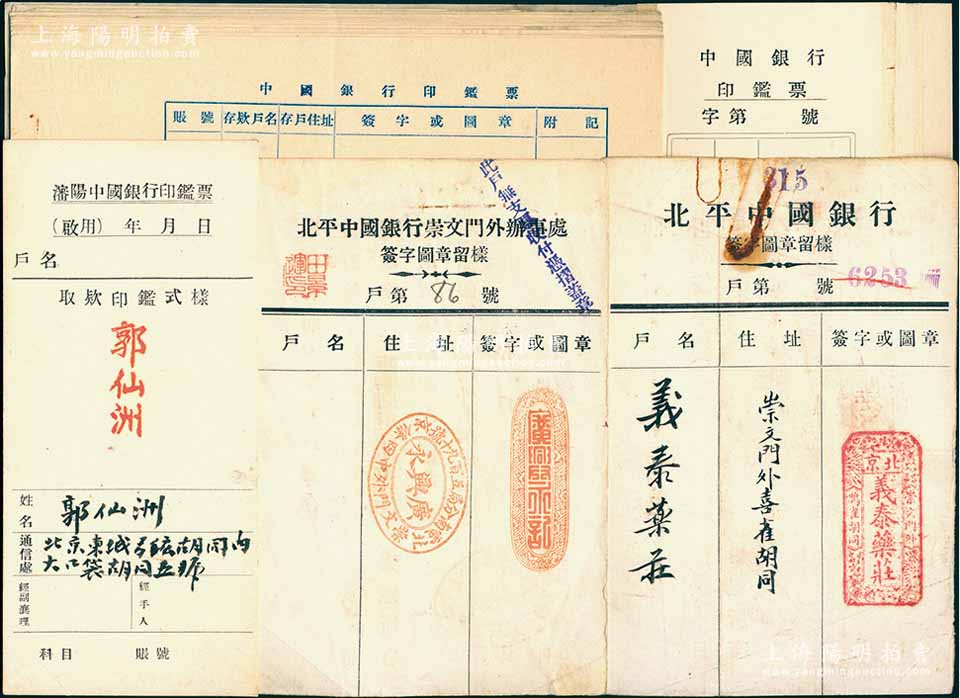 上海陽明拍賣
www.yangmingauction.com
中國銀行印鑑票
賬號 存欵戶名 存戶住址 簽字或圖章 附記
中國銀行
印鑑票
字第 號
瀋陽中國銀行印鑑票
(啟用) 年 月 日
戶名
取欵印鑑式樣
郭仙洲
姓名 郭仙洲
通信處 北京東城
大口袋胡同五號
經副襄理 經手人
科目 賬號
北平中國銀行崇文門外辦事處
簽字圖章留樣
戶第 86 號
戶名 住址 簽字或圖章
永興廣
315
北平中國銀行
簽字圖章留樣
戶第 號 6253
戶名 住址 簽字或圖章
義泰藥莊
崇文門外喜雀胡同
北京
義泰藥莊
上海陽明拍賣
www.yangmingauction.com